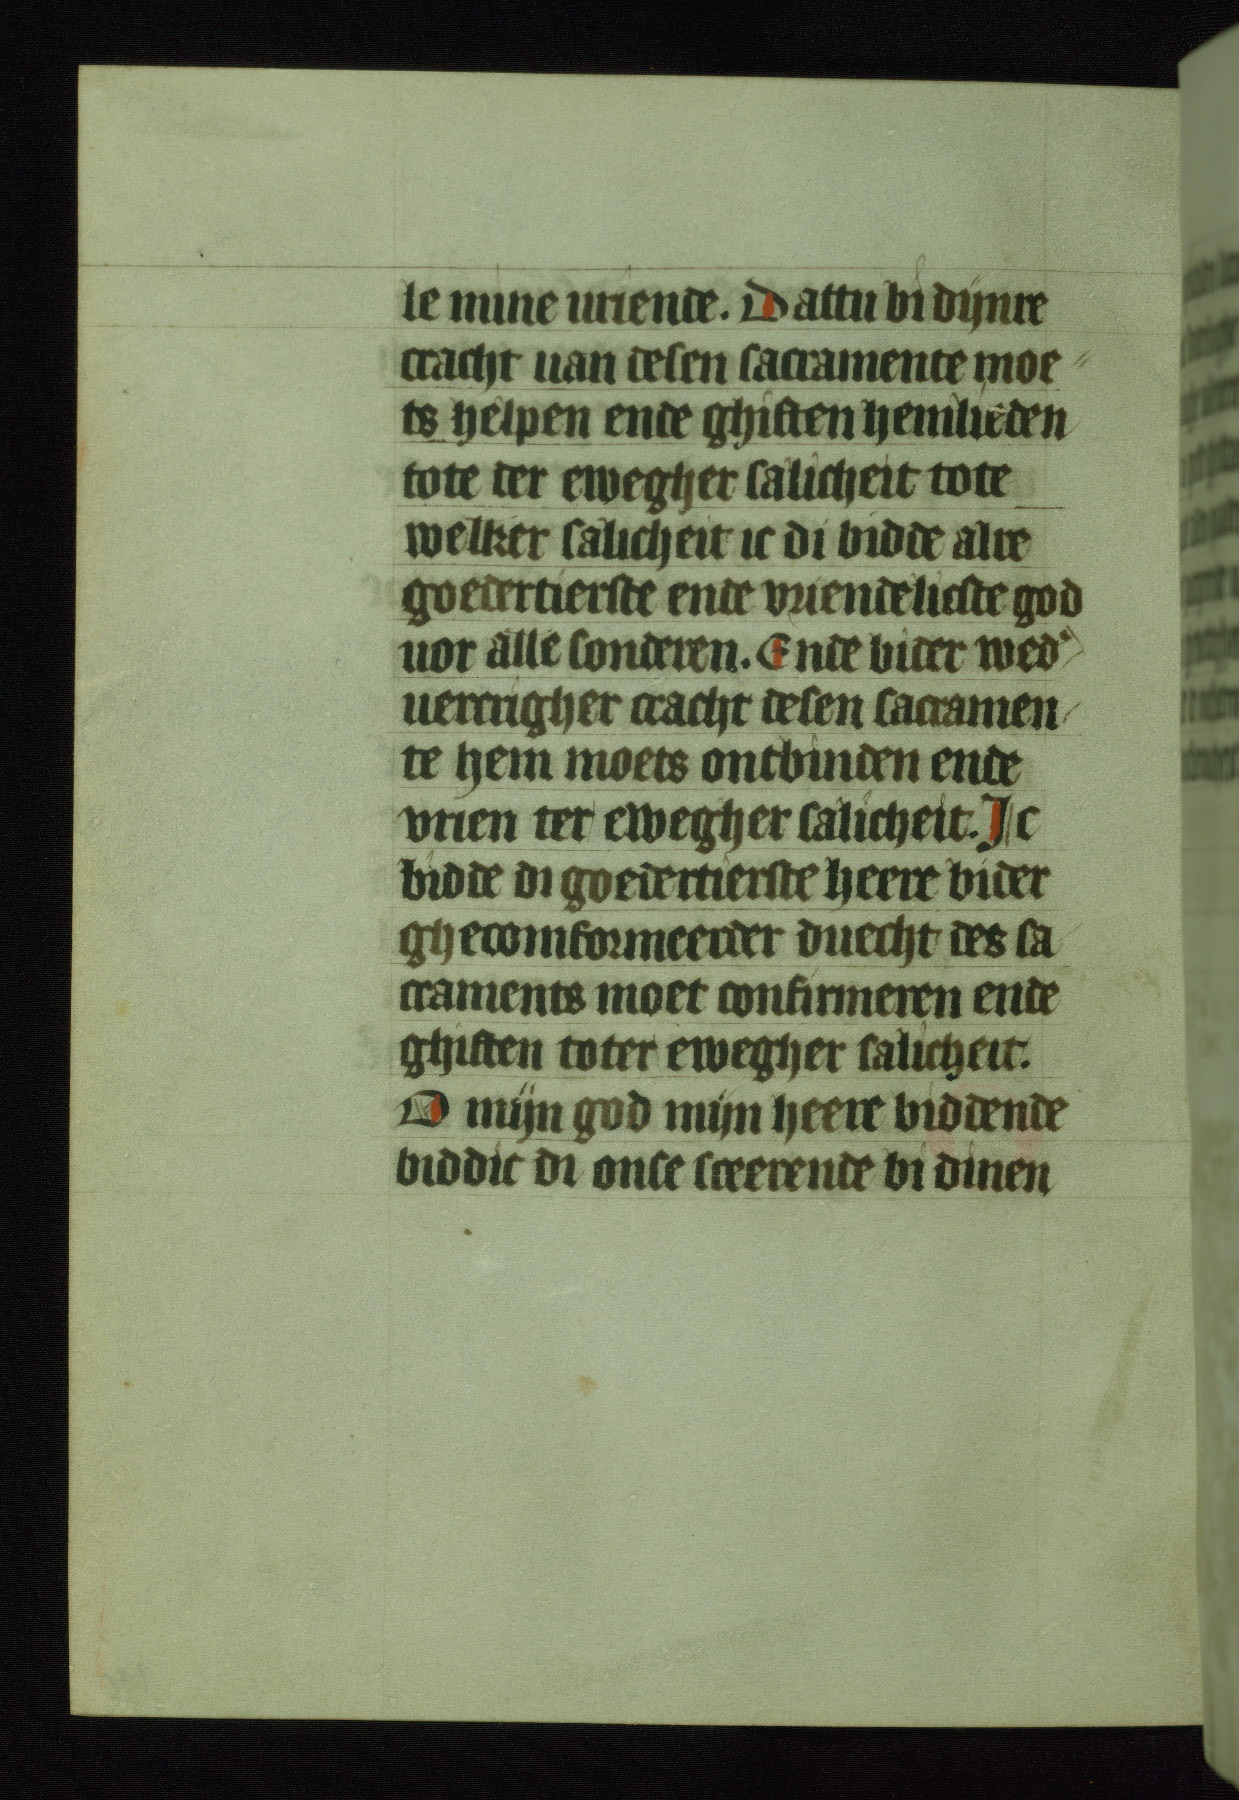 le mine uriende. Dattu bi dijnre
cracht uan desen sacramente moe
ts helpen ende ghiften hemlieden
tote der ewegher salicheit tote
welker salicheit ic di bidde alre
goedertierste ende vriendelicste god
uor alle sonderen. Ende bider wed'
uercrigher cracht desen sacramen
te hem moets ontbinden ende
vrien ter ewegher salicheit. Ic
bidde di goedertierste heere bider
ghecomformeerder duecht des sa
craments moet confirmeren ende
ghiften toter ewegher salicheit.
O mijn god mijn heere biddende
biddic di onse screerende bi dinen